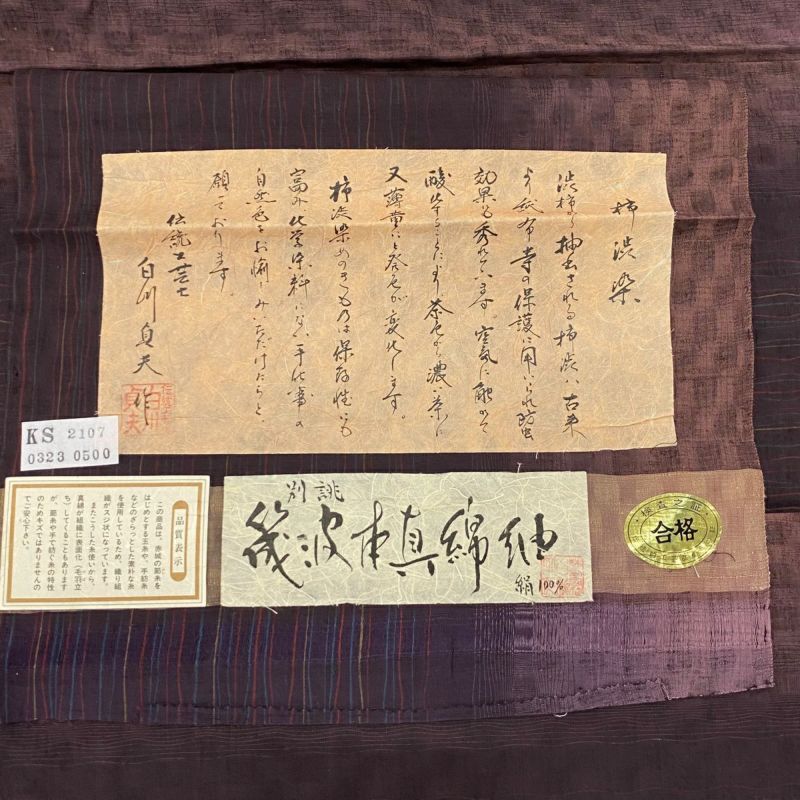 柿渋染
渋柿から抽出される柿渋は、古来
より紙布等の保護に用いられ防虫
効果も秀れています。空気に触れて
酸化することにより茶色から濃茶に
又薄黄にと発色が変化します。
柿渋染めのきものは保存性にも
富み化学染料にない手仕事の
自然色をお愉しみいただけたらと
願っております。
伝統工芸士
白川貞夫 作
KS 2107
0323 0500
品質表示
この商品は、赤城の節糸を
はじめとする玉糸や、手紡糸
などのざらっとした素朴な糸
を使用しているため、織り組
織がスジ状になっています。
またこうした糸使いから、
真綿が組織に表面化(毛羽立
ち)してくることもあります
が、節糸や手で紡ぐ糸の特性
のためキズではありませんの
でご安心下さい。
別誂
筬波本真綿紬
絹100%
検査之証
合格